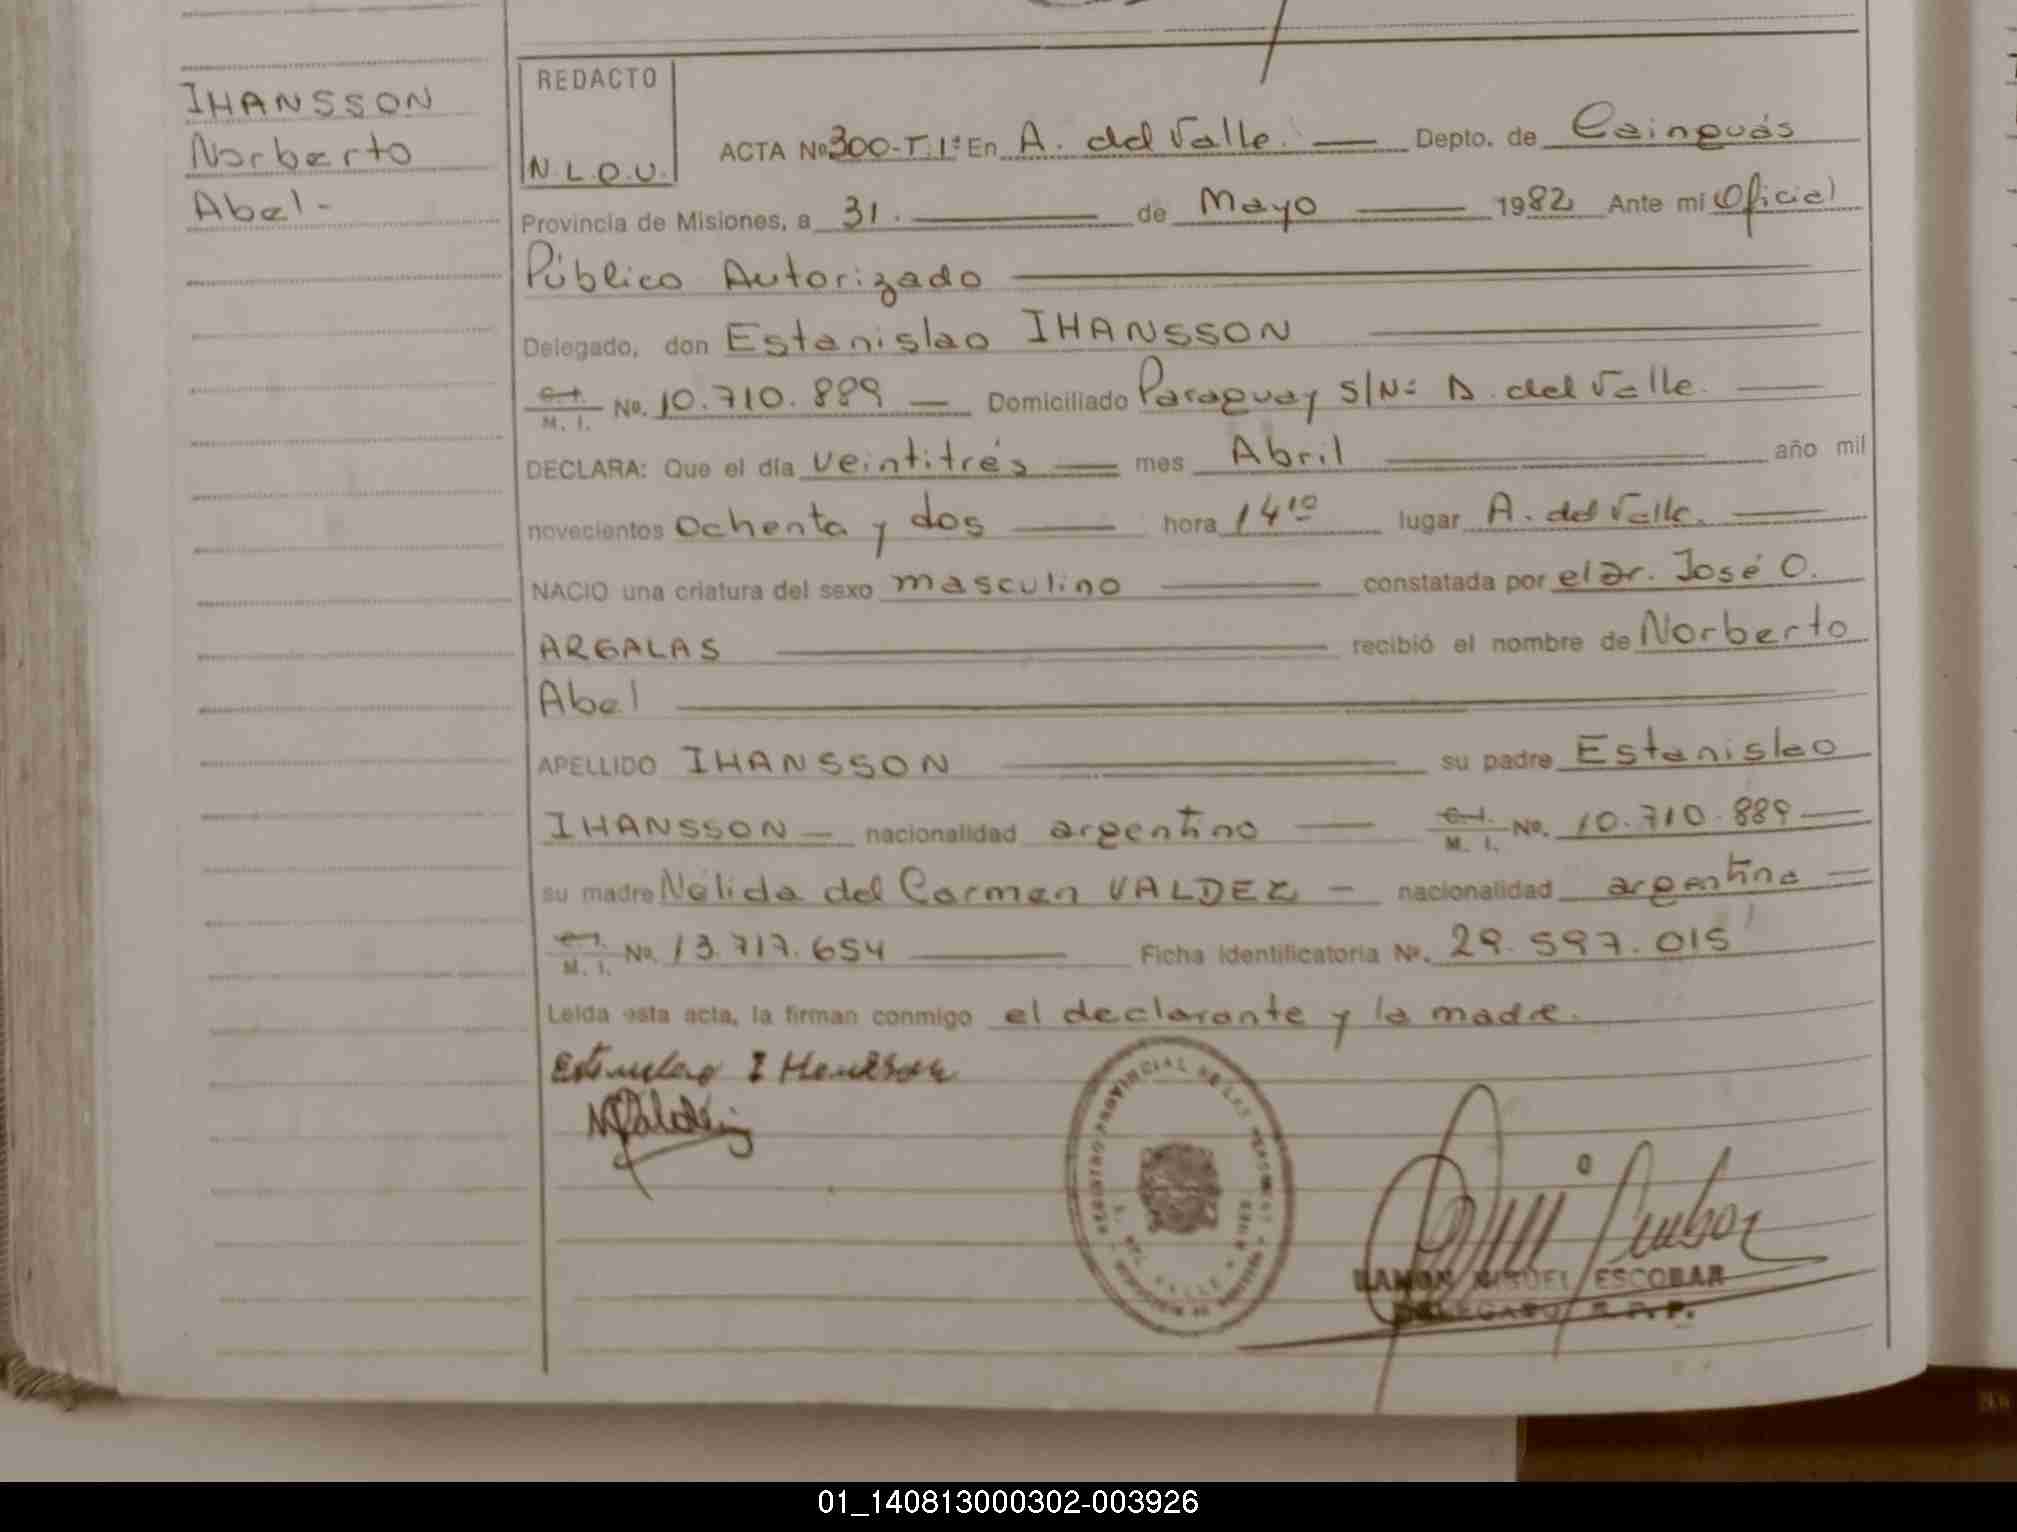 IHANSSON
Norberto
Abel -
REDACTO
N.L.O.U.
ACTA Nº 300-T.1º En A. del Valle. Depto. de Cainguás
Provincia de Misiones, a 31. de Mayo 1982 Ante mi Oficial
Público Autorizado
Delegado, don Estanislao IHANSSON
C.I.
M. I. No. 10.710.889 Domiciliado Paraguay S/Nº A. del Valle.
DECLARA: Que el día veintitrés mes Abril año mil
novecientos ochenta y dos hora 14 10 lugar A. del Valle.
NACIO una criatura del sexo masculino constatada por el Dr. José O.
ARGALAS recibió el nombre de Norberto
Abel
APELLIDO IHANSSON su padre Estanislao
IHANSSON nacionalidad argentino C.I.
M. I. No. 10.710.889
su madre Nélida del Carmen VALDEZ - nacionalidad argentina
C.I.
M. I. No. 13.717.654 Ficha identificatoria Nº. 29.597.015
Leída esta acta, la firman conmigo el declarante y la madre.
REGISTRO PROVINCIAL DE LAS PERSONAS
DEL VALLE
RAMON MIGUEL ESCOBAR
DELEGADO R. P. P.
01_140813000302-003926